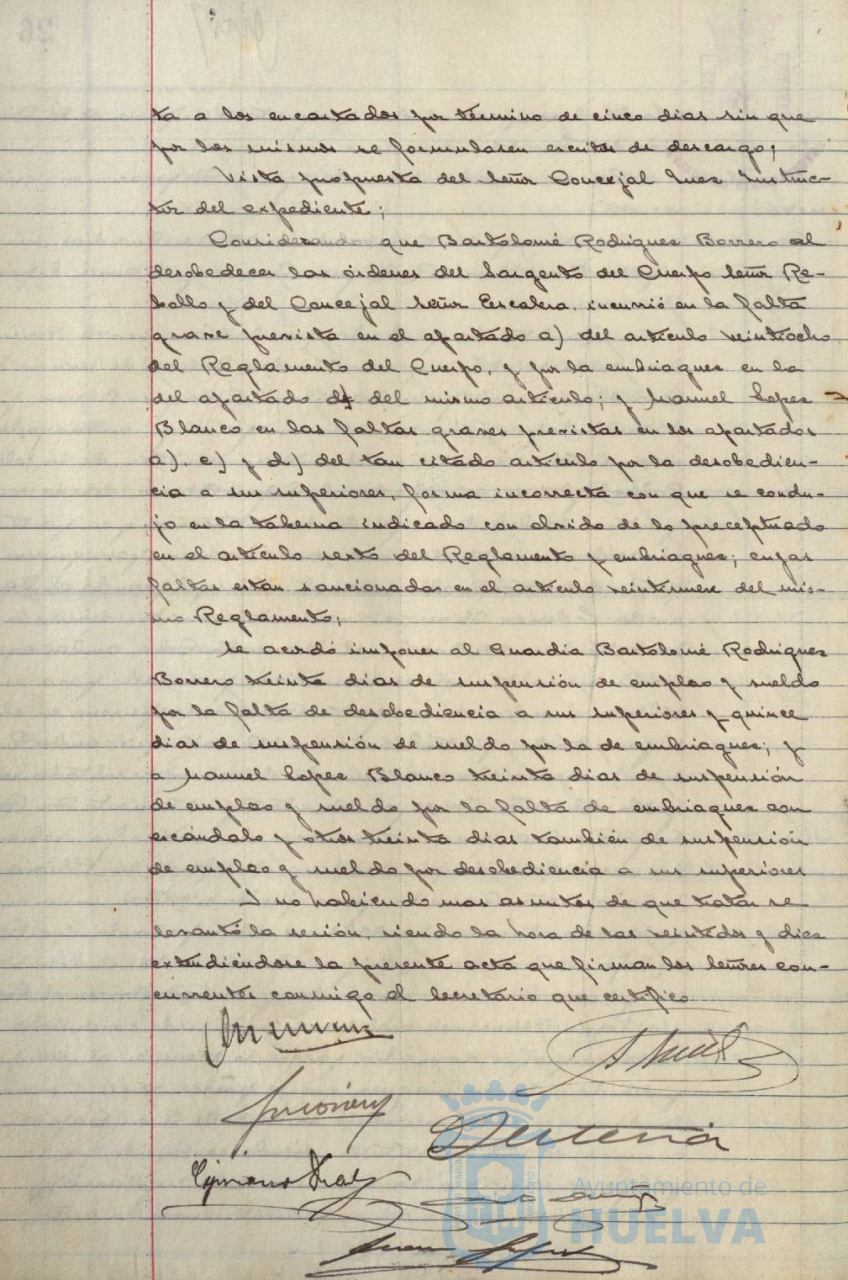 ta a los encartados por término de cinco dias sin que
por los mismos se formularsen escritos de descargo;
Vista propuesta del Señor Concejal Juez Instruc-
tor del expediente;
Considerando que Bartolomé Rodriguez Borrero al
desobedecer las órdenes del Sargento del Cuerpo Señor Re-
bollo y del Concejal Señor Escalera, incurrió en la falta
grave prevista en el apartado a) del articulo veintiocho
del Reglamento del Cuerpo, y por la embriaguez en la
del apartado d) del mismo articulo; y Manuel Lopez
Blanco en las faltas graves previstas en los apartados
a), c) y d) del tan citado articulo por la desobedien-
cia a sus superiores, forma incorrecta con que se condu-
jo en la taberna indicado con olvido de lo preceptuado
en el articulo sexto del Reglamento y embriaguez; cuyas
faltas estan sancionadas en el articulo veintinueve del mis-
mo Reglamento;
Se acordó imponer al Guardia Bartolomé Rodriguez
Borrero treinta dias de suspensión de empleo y sueldo
por la falta de desobediencia a sus superiores y quince
dias de suspensión de sueldo por la de embriaguez; y
a Manuel Lopez Blanco treinta dias de suspensión
de empleo y sueldo por la falta de embriaguez con
escándalo y otros treinta dias también de suspensión
de empleo y sueldo por desobediencia a sus superiores
Y no habiendo mas asuntos de que tratar se
levantó la sesión, siendo la hora de las veintidos y diez
extendiéndose la presente acta que firman los Señores con-
currentes conmigo el Secretario que certifico
Ayuntamiento de
HUELVA